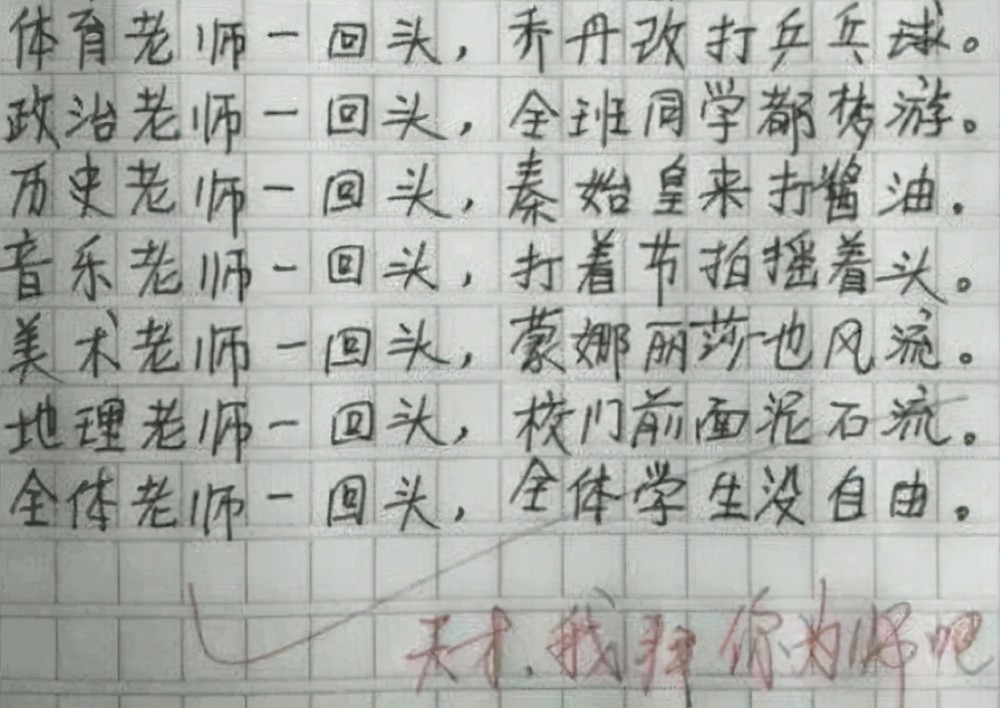 体育老师一回头，乔丹改打乒乓球。
政治老师一回头，全班同学都梦游。
历史老师一回头，秦始皇来打酱油。
音乐老师一回头，打着节拍摇着头。
美术老师一回头，蒙娜丽莎也风流。
地理老师一回头，校门前面泥石流。
全体老师一回头，全体学生没自由。
天才，我拜你为师吧